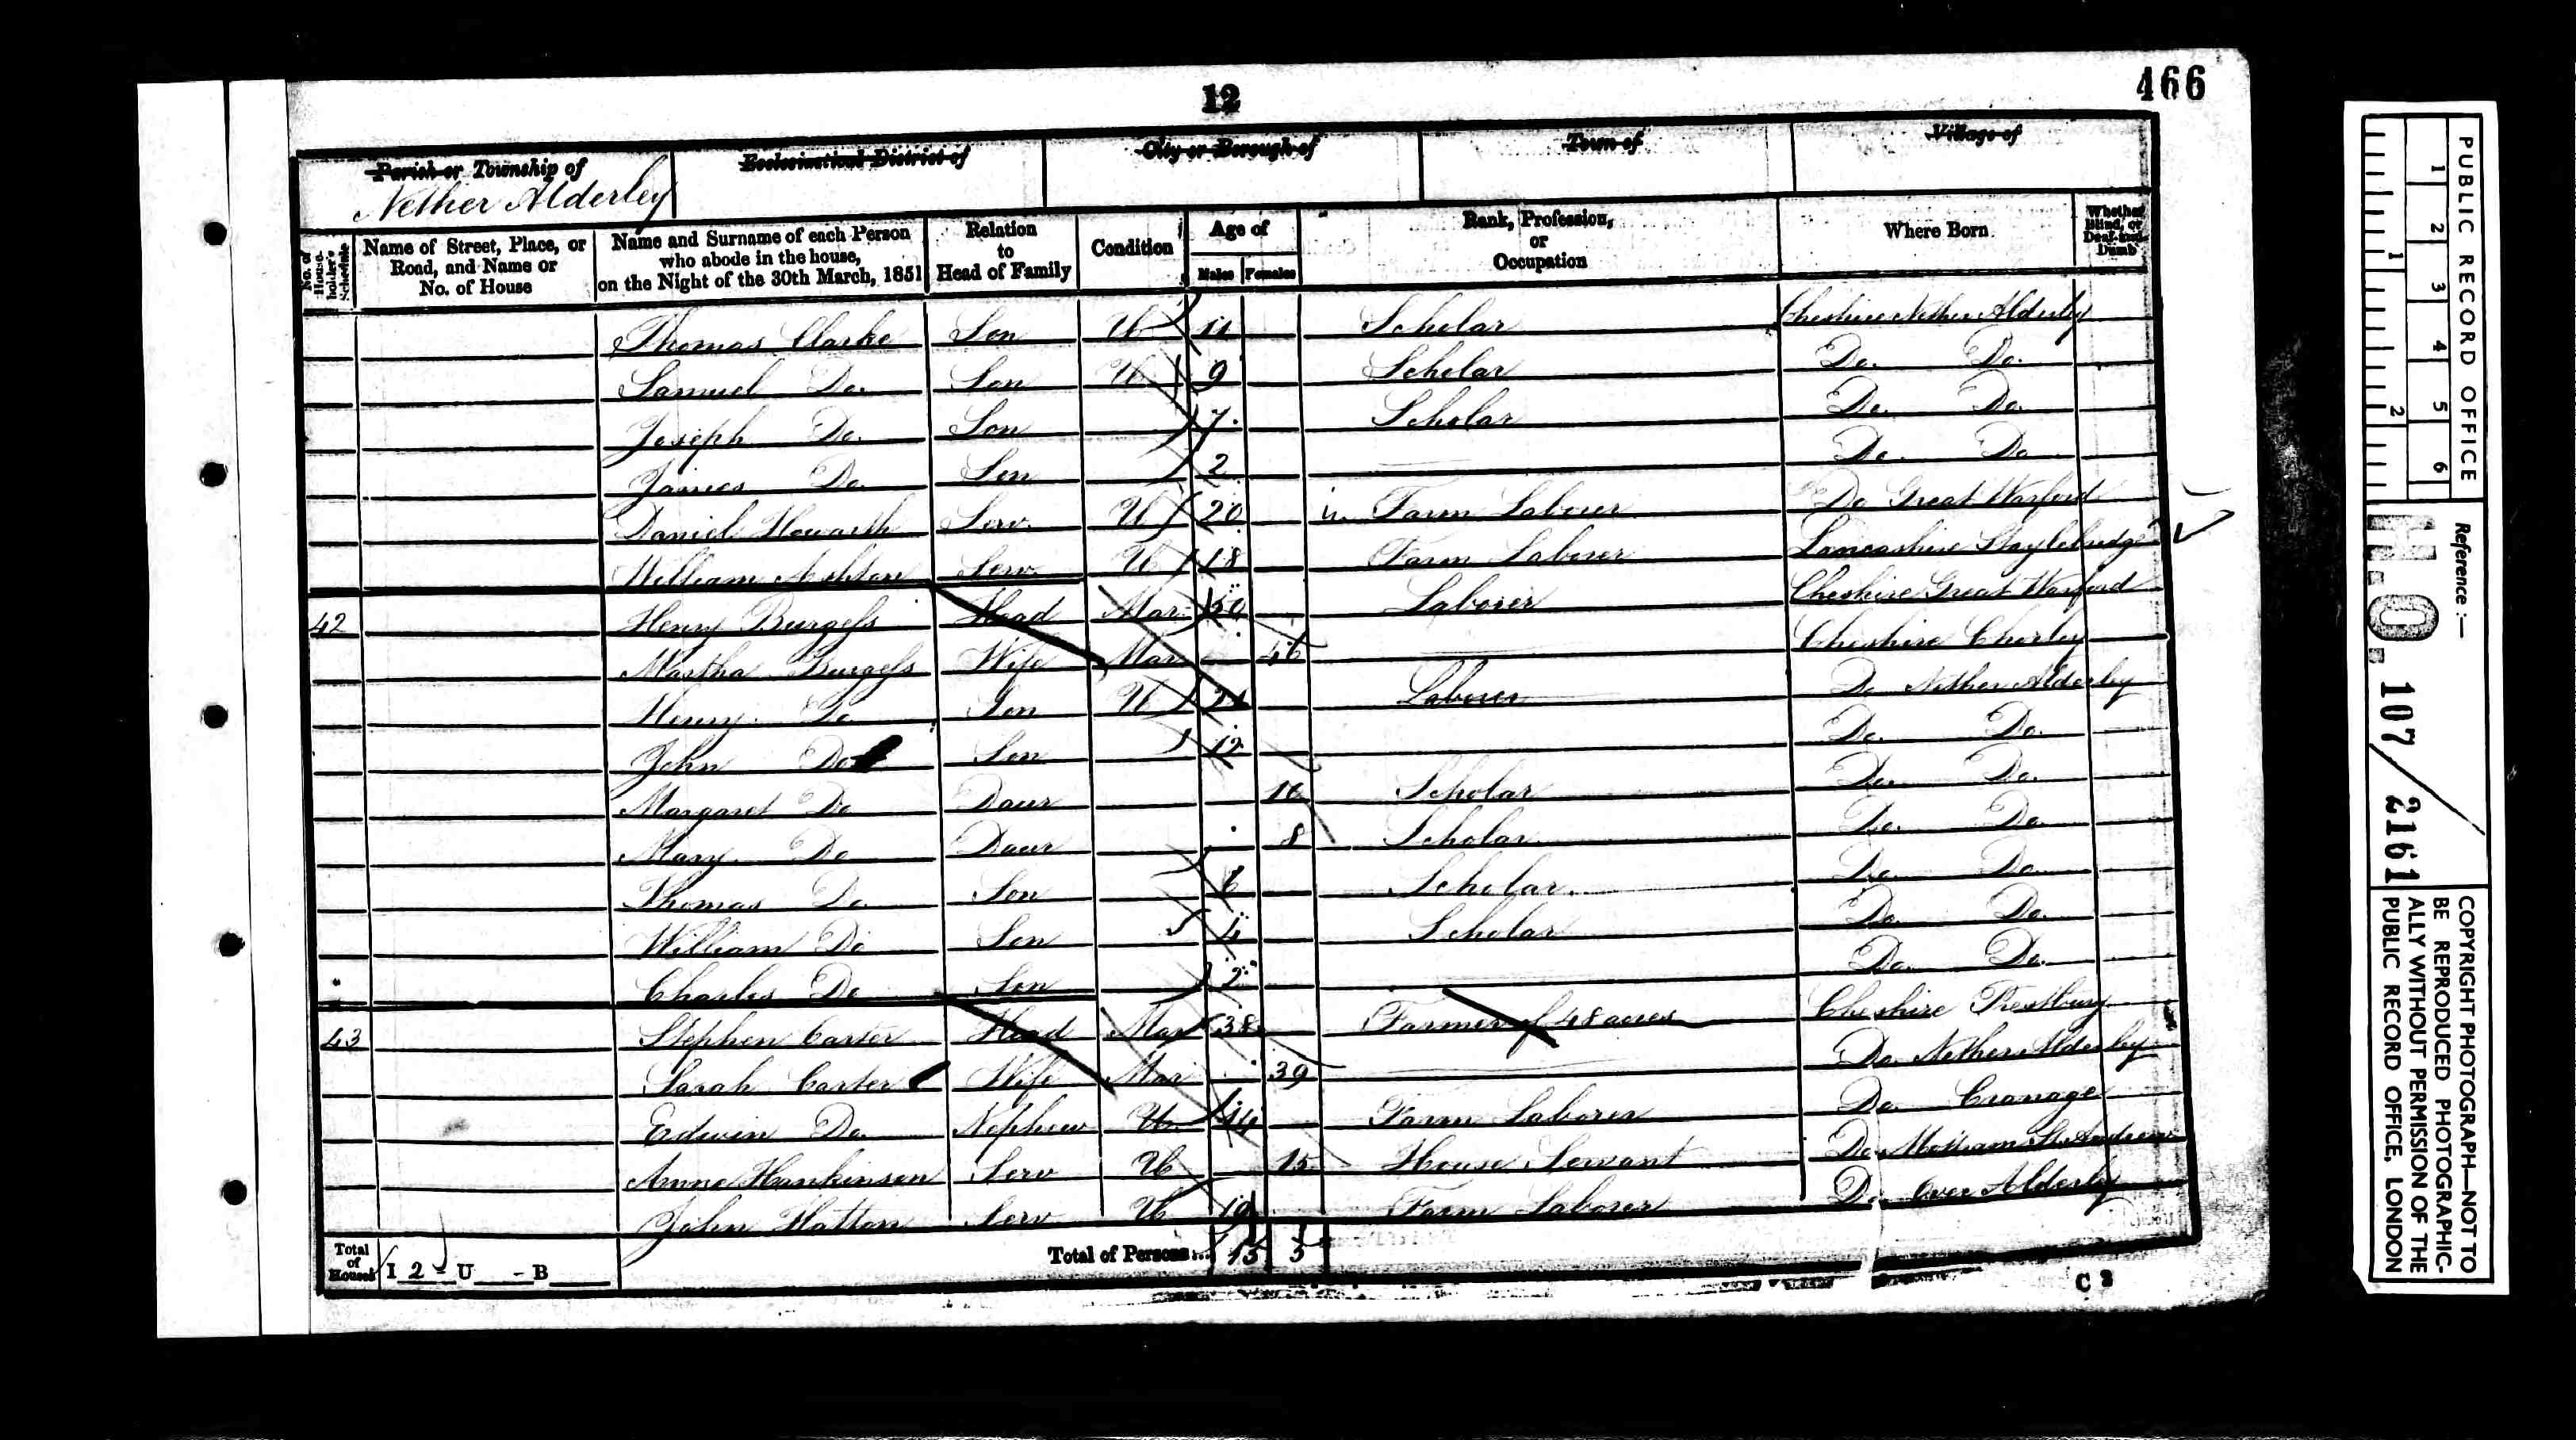 12
466
Parish or Township of
Nether Alderley
Ecclesiastical District of
City or Borough of
Town of
Village of
No. of House-holder's Schedule
Name of Street, Place, or Road, and Name or No. of House
Name and Surname of each Person who abode in the house, on the Night of the 30th March, 1851
Relation to Head of Family
Condition
Age of
Males Females
Rank, Profession, or Occupation
Where Born
Whether Blind, or Deaf-and-Dumb
Thomas Clarke Son U 11 Scholar Cheshire Nether Alderley
Samuel Do. Son U 9 Scholar Do. Do.
Joseph Do. Son 7 Scholar Do. Do.
James Do. Son 2 Do. Do
Daniel Howarth Serv. U 20 Farm Laborer Do Great Warford
William Ashton Serv. U 18 Farm Laborer Lancashire Stayleybridge
42 Henry Burgess Head Mar 50 Laborer Cheshire Great Warford
Martha Burgess Wife Mar 46 Cheshire Chorley
Henry Do Son U 21 Laborer Do Nether Alderley
John Do Son 12 Do. Do.
Margaret Do Daur 10 Scholar Do. Do.
Mary Do Daur 8 Scholar Do. Do
Thomas Do Son 6 Scholar. Do. Do.
William Do Son 4 Scholar Do. Do.
Charles Do Son 2 Do. Do.
43 Stephen Carter Head Mar 38 Farmer of 48 acres Cheshire Prestbury
Sarah Carter Wife Mar 39 Do. Nether Alderley
Edwin Do. Nephew U 14 Farm Laborer Do Cranage
Anne Hankinson Serv U 15 House Servant Do. Mottram St. Andrew
John Hatton Serv U 19 Farm Laborer Do Over Alderley
Total of Houses I 2 U - B
Total of Persons... 15 5
C 2
PUBLIC RECORD OFFICE
1 2 3 4 5 6
1 2
Reference :—
H.O. 107/2161
COPYRIGHT PHOTOGRAPH—NOT TO
BE REPRODUCED PHOTOGRAPHIC-
ALLY WITHOUT PERMISSION OF THE
PUBLIC RECORD OFFICE, LONDON